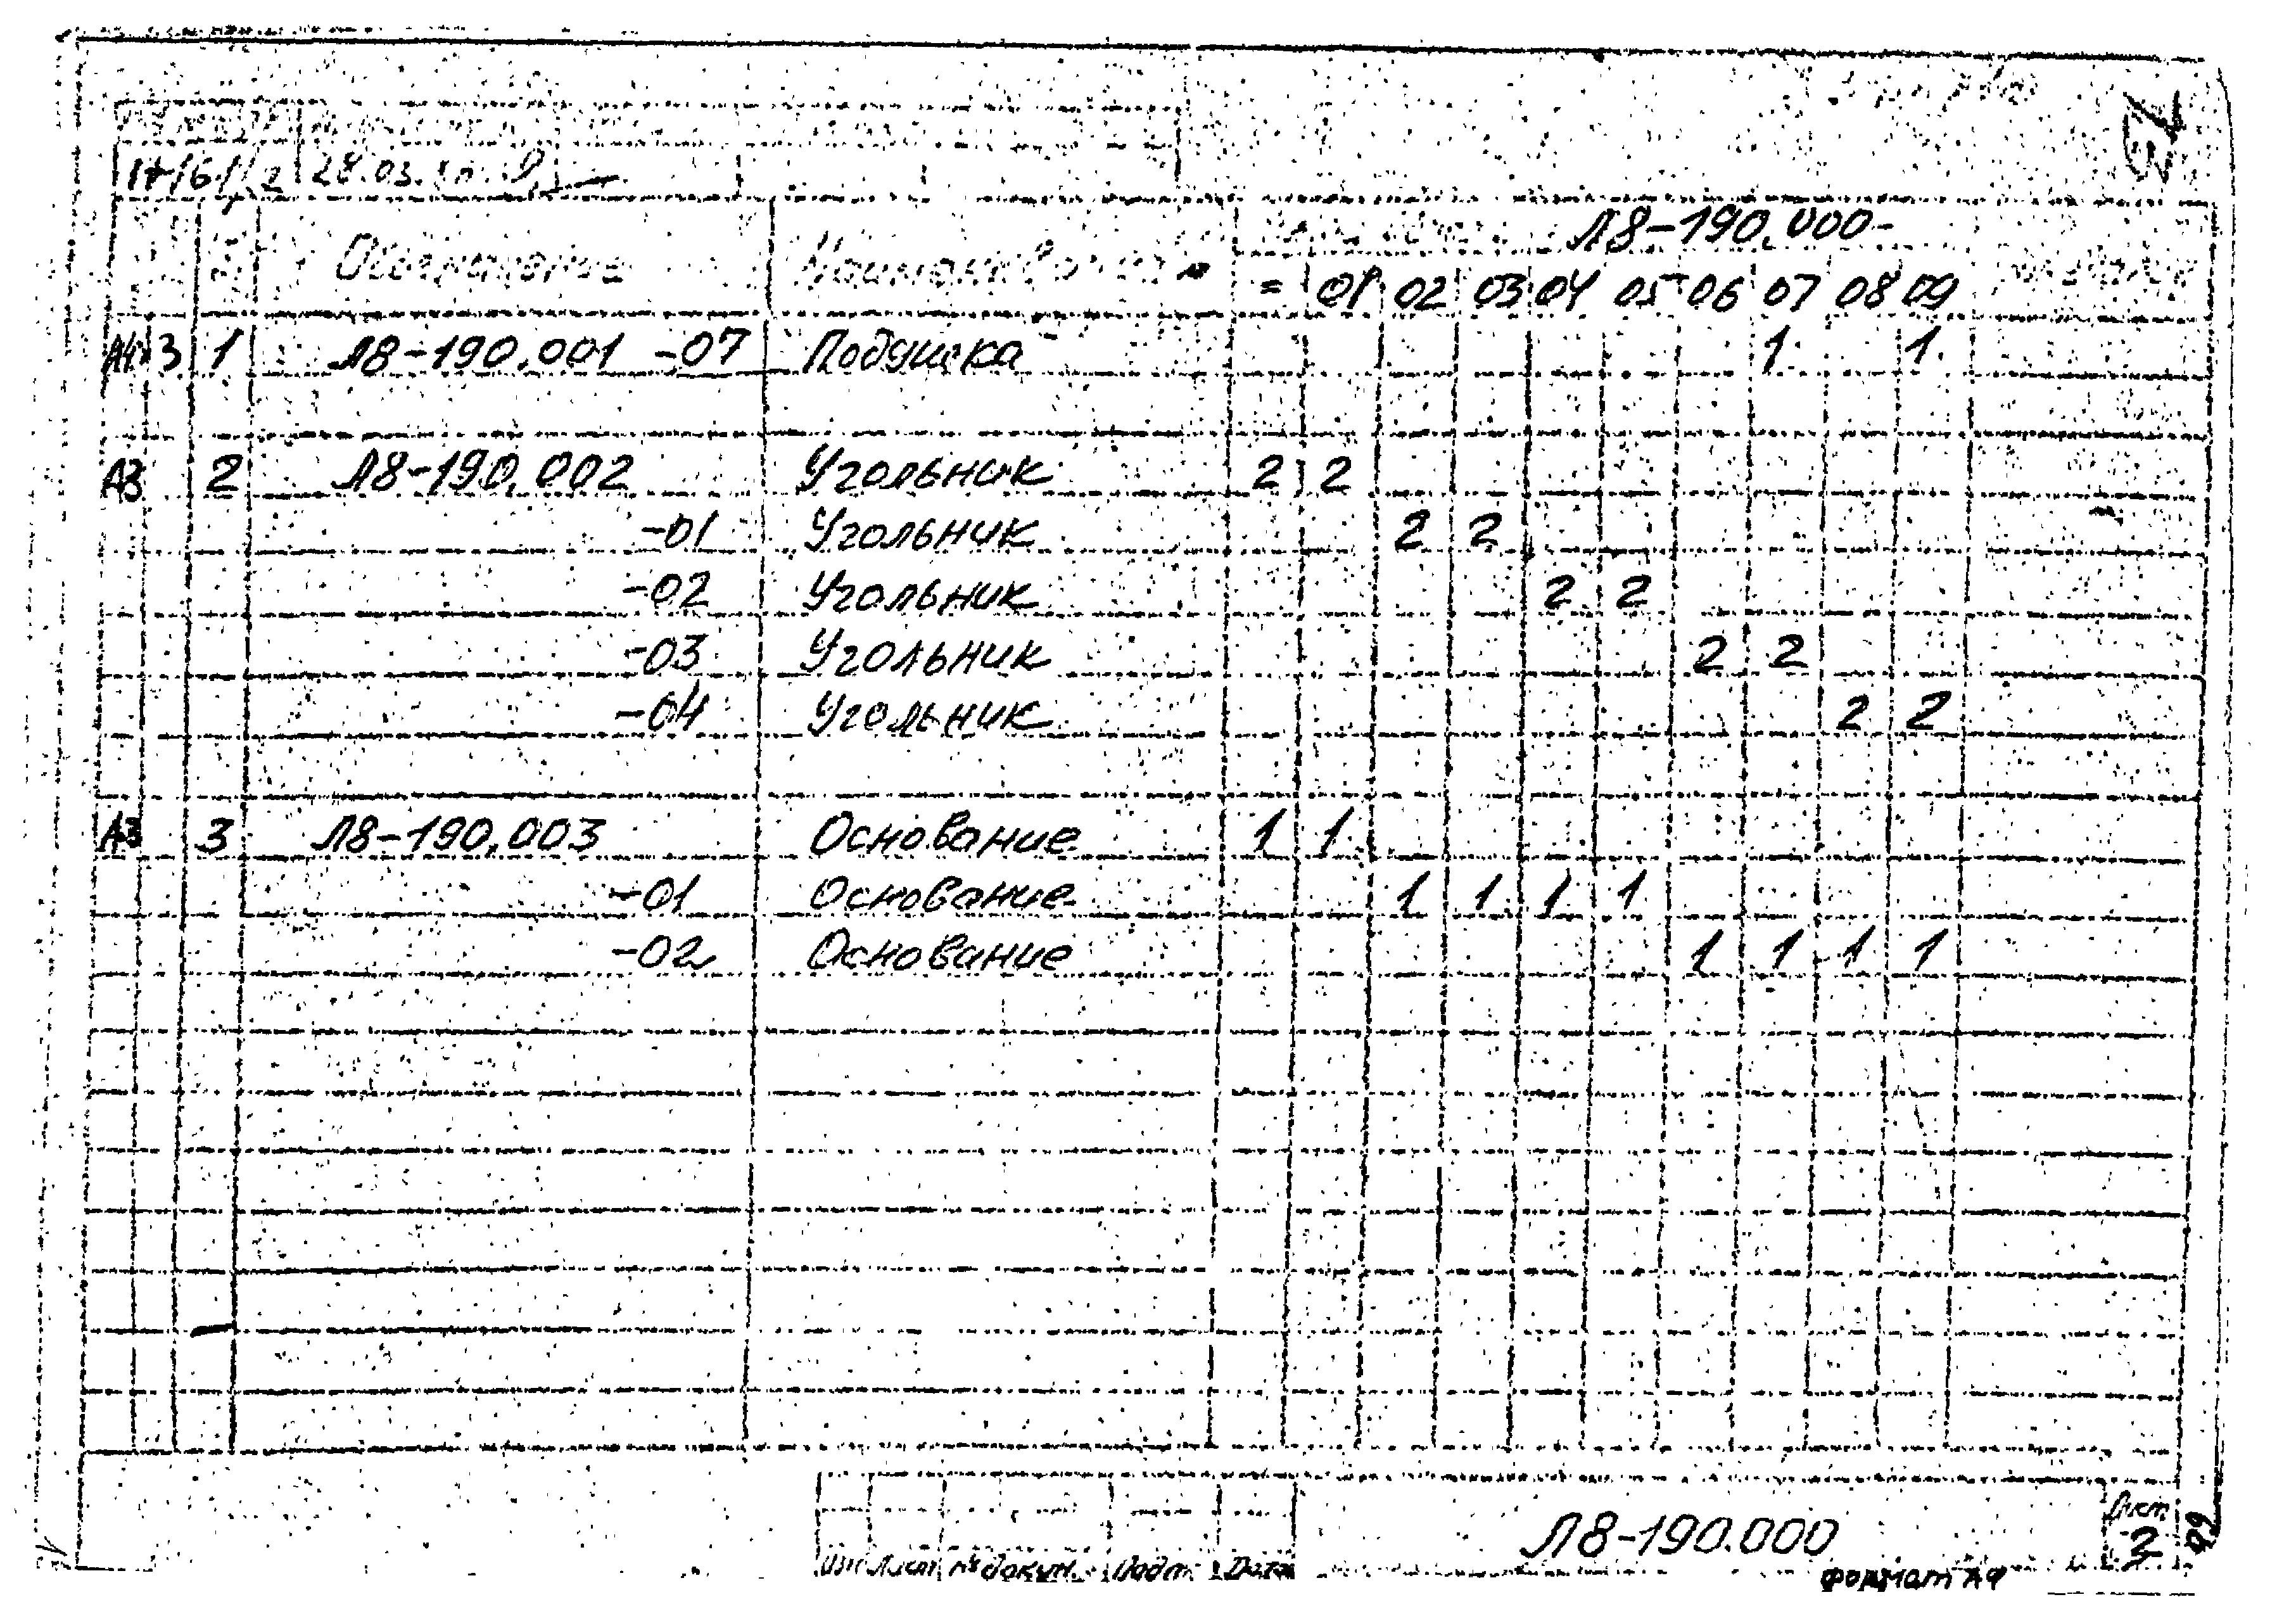 28.03.
Обозначение Наименование Л8-190.000-
- 01 02 03 04 05 06 07 08 09
А4 3 1 Л8-190.001 -07 Подушка 1 1
А3 2 Л8-190.002 Угольник 2 2
-01 Угольник 2 2
-02 Угольник 2 2
-03 Угольник 2 2
-04 Угольник 2 2
А3 3 Л8-190.003 Основание 1 1
-01 Основание 1 1 1 1
-02 Основание 1 1 1 1
Лист
Л8-190.000 2
Изм Лист № докум. Подп. Дата
формат А4